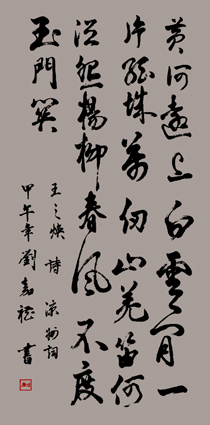 黄河遠上白雲间一
片孤城萬仞山羌笛何
須怨楊柳春風不度
玉門関
王之焕 詩 凉州詞
甲午年劉嘉 書